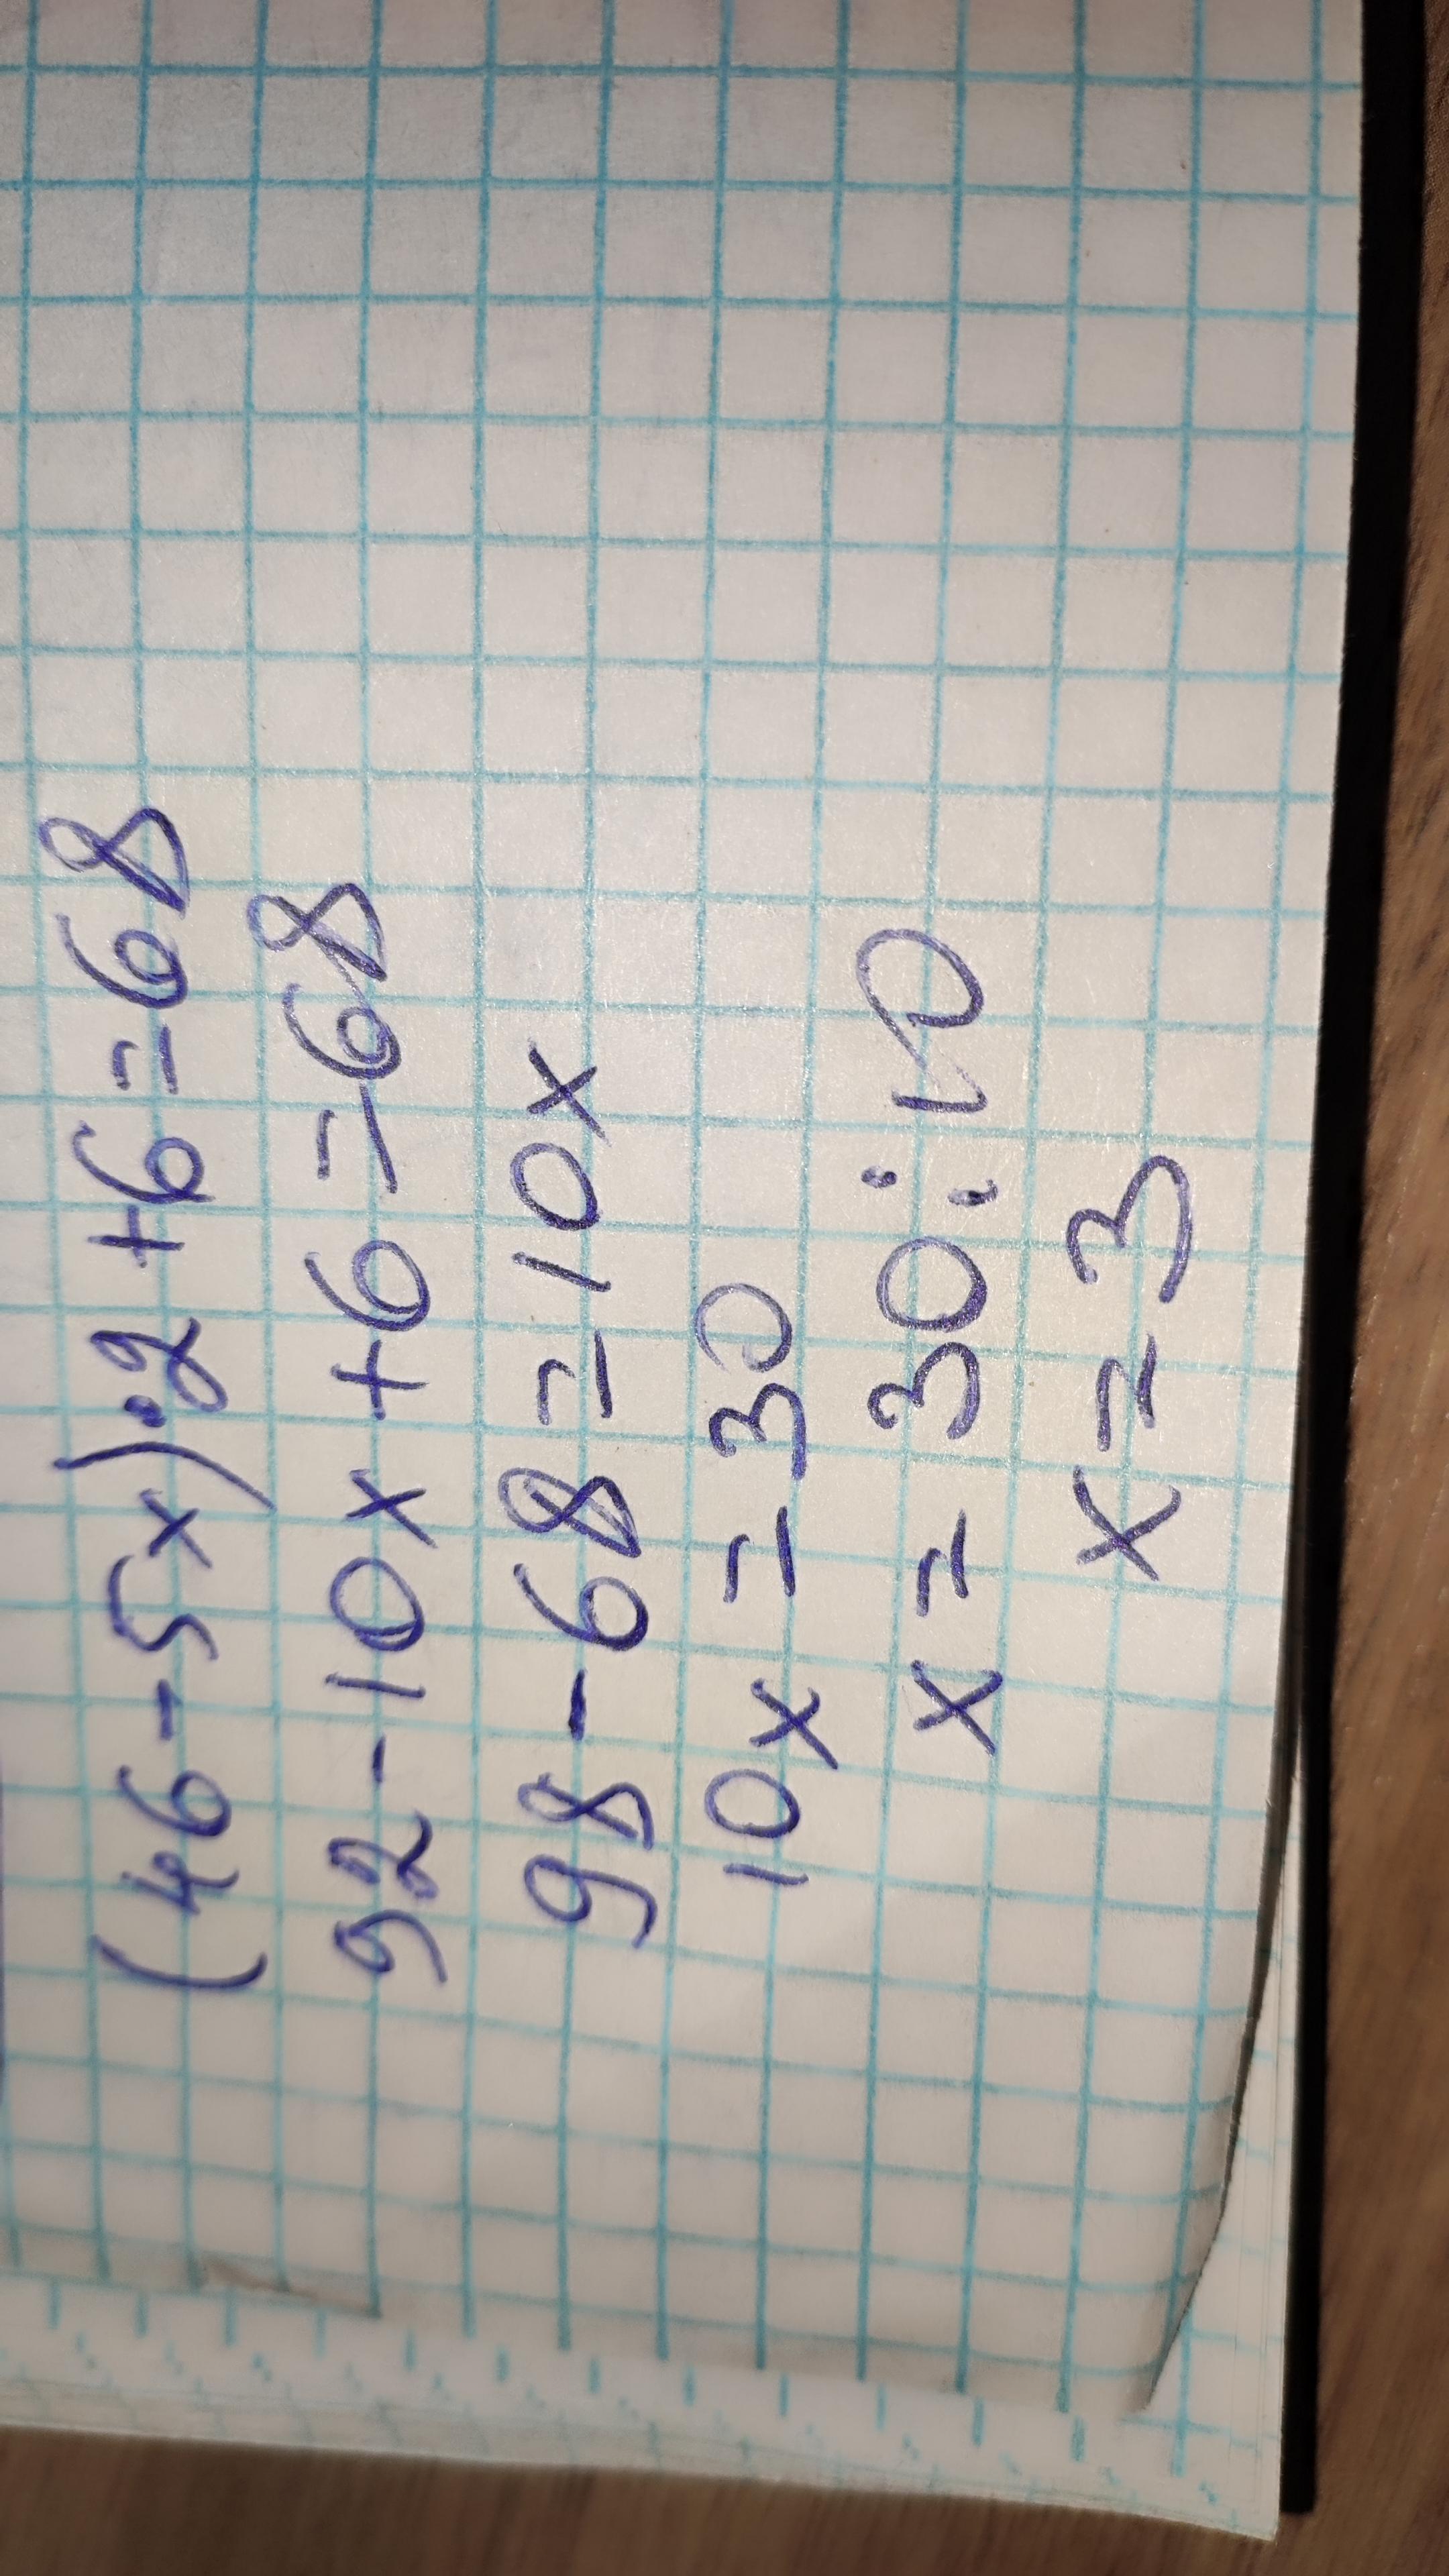 (46-5x)·2+6=68
92-10x+6=68
98-68=10x
10x=30
x=30:10
x=3